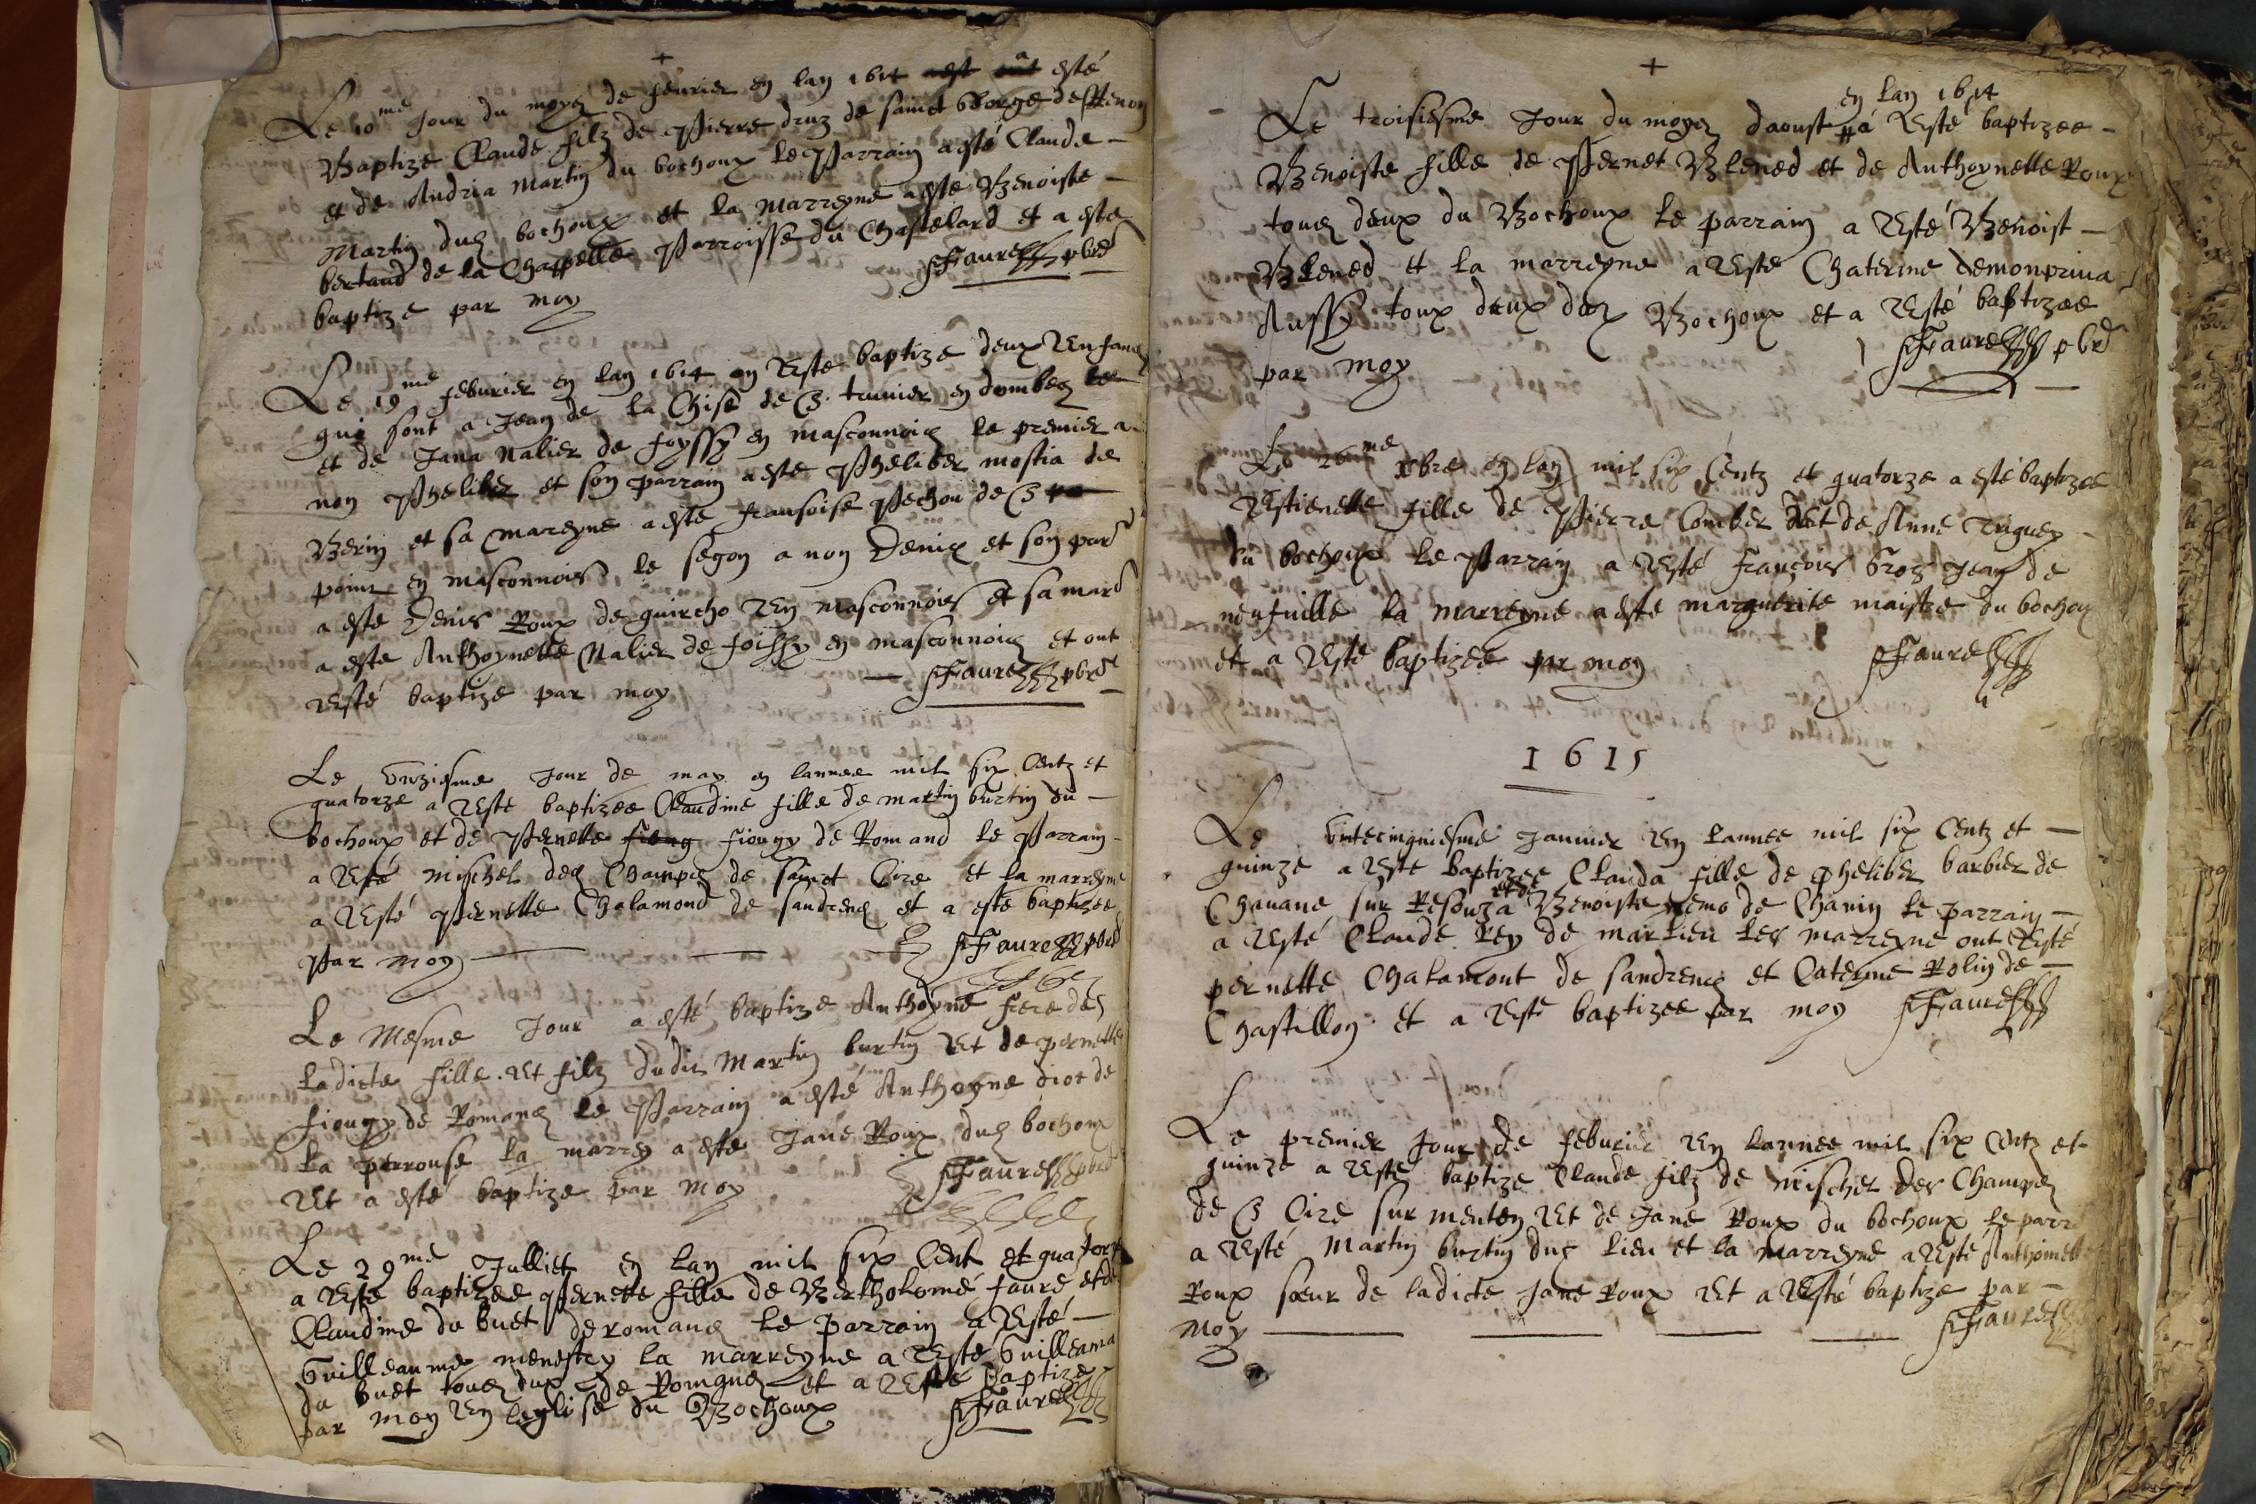 Le 10me Jour du moys de feurier en lan 1614 a esté
Baptize Claude filz de Pierre druz de sainct George de
et de Andria Martin du bochoux le Parrain a esté Claude
Martin dud bochoux et la Marreyne a este Benoiste
bertaud de la Chappelle Parroisse du Chastelard et a este
baptize par moy
Faure pbre
Le 19me feburier en lan 1614 on Este baptize deux Enfans
qui sont a Jean de la Chise de S. triuier en dombes
et de Jana Nalier de foyssy en masconnois le premier a
non Pheliber et son parrain a este Pheliber mostia de
Berin et sa mareyne a este fransoise Pechou de S
point en masconnois le segon a non Denis et son parr
a este Denis Roux de guircho En masconnois et sa marr
a este Anthoynette Nalier de foissy en masconnois et ont
Esté baptize par moy
Faure pbre
Le Unziesme Jour de may en lannee mil six Centz et
quatorze a Este baptizee Claudine fille de martin burtin du
bochoux et de Pernette fiougy de Romand le Parrain
a Esté mischel des Champs de sainct Cire et la marreyne
a Esté Pernette Chalamond de sandrens et a este baptizee
Par moy
Faure pbre
Le Mesme Jour a esté baptize Anthoyne frere de
Ladicte fille Et filz dudit Martin burtin Et de pernette
fiougy de Romans le Parrain a esté Anthoyne diot de
la perrouse la marrey a este Jane Roux dud bochoux
Et a esté baptize par moy
Faure pbre
Le 29me Julliet en lan mil six Cent et quatorze
a Esté baptizee Pernette fille de Bertholomé faure et de
Claudine du buet de romans le parrain a Esté
Guilleaume menestry la marreyne a Esté Guilleama
du buet tous dux de Romans et a Esté baptize
par moy En leglise du Bochoux
Faure
en lan 1614
Le troisiesme Jour du moys daoust a Esté baptizee
Benoiste fille de Pernet Blened et de Anthoynette Roux
tous deux du Bochoux le parrain a Esté Benoist
Blened et la marreyne a Este Chaterine demonpriua
Aussy toux deux des Bochoux et a Esté baptizee
par moy
Faure pbre
Le 26me xbre en lan mil six Centz et quatorze a esté baptizee
Estienette fille de Pierre Comber Et de Anne Triguey
du bochoux le Parrain a Esté François Groz Jean de
neufuille la marreyne a este marguerite maistre du bochoux
et a Este baptizee par moy
Faure
1615
Le Vintecinquiesme Januier En Lannee mil six Centz et
quinze a Este baptizee Clauda fille de pheliber barbier de
et de
Chauane sur Resouza Benoiste nemo de Chanin le parrain
a Esté Claude Rey de marlieu les marreyne ont Esté
pernette Chalamont de sandrens et Caterine Rolin de
Chastillon et a Este baptizee par moy
Faure
Le premier Jour de feburier En Lannee mil six Centz et
quinze a Este baptize Claude filz de mischel des Champs
de S Cire sur menton Et de Jane Roux du bochoux le parr
a Esté Martin burtin dud lieu et la marreyne a Este Anthoinette
Roux sœur de ladicte Jane Roux Et a Esté baptize par
moy
Faure